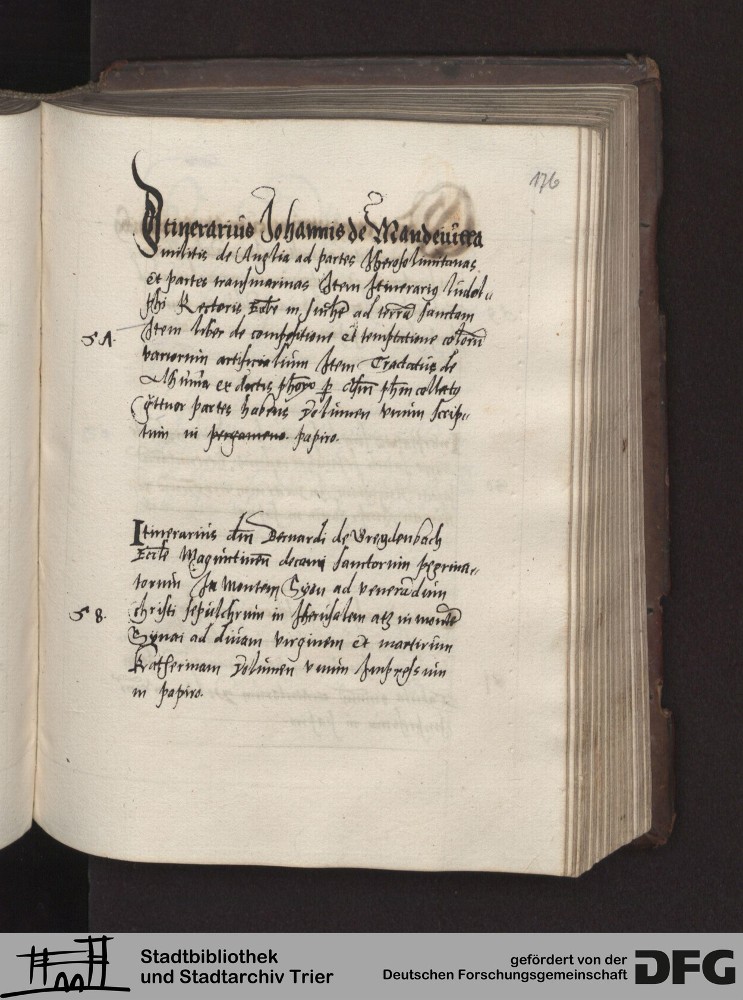 176
Itinerarius Johannis de Mandeuilla
militis de Anglia ad partes Iherosolimitanas
et partes transmarinas Item Itinerariꝰ ludol-
phi Rectoris Eccłie in Suchē ad terrā sanctam
S A. Item liber de compositione et temptatione colorū
variorum artificialium Item Tractatus de
ex dictis
partes habens Volumen vnum scrip-
tum in pergameno. papiro.
Itinerarius dn̄i Bernardi de Breydenbach
Eccłie Maguntinen̄ decani sanctorum peregrina-
torum In Montem Syon ad venerandum
S 8. christi sepulchrum in Iherusalem atqꝫ in montē
Synai ad diuam virginem et martirem
Katherinam Volumen vnum Impressum
in papiro.
Stadtbibliothek
und Stadtarchiv Trier
gefördert von der
Deutschen Forschungsgemeinschaft
DFG